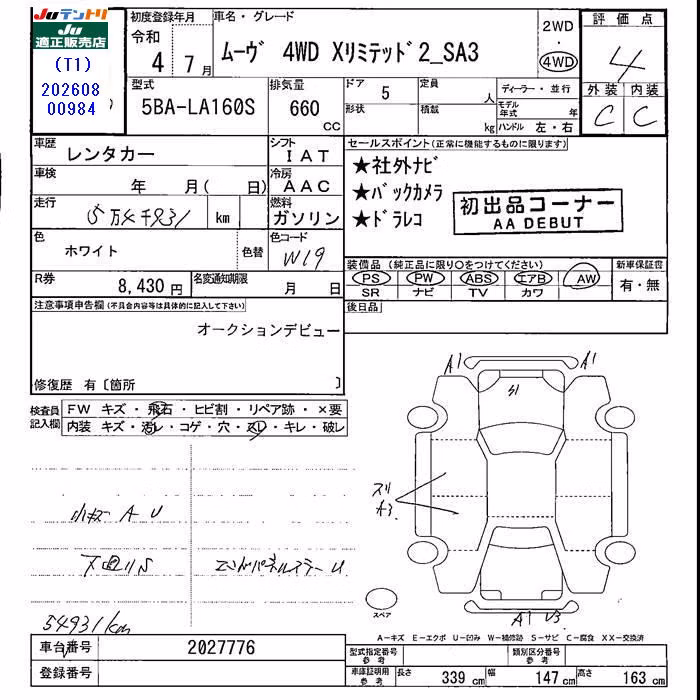 Juテントリ
Ju
適正販売店
(T1)
202608
00984
初度登録年月
令和
4 7月
車名・グレード
ムーヴ 4WD Xリミテッド2_SA3
2WD
・
4WD
評価点
4
外装 内装
C C
型式
5BA-LA160S
排気量
660
cc
ドア
5
形状
定員
人
積載
kg
ディーラー・並行
モデル年式 年
ハンドル 左・右
車歴
レンタカー
シフト
IAT
車検
年 月( 日)
冷房
AAC
走行
5万4千931 km
燃料
ガソリン
色
ホワイト
色替
色コード
W19
R券
8,430 円
名変通知期限
月 日
セールスポイント(正常に機能するものに限ります)
★社外ナビ
★バックカメラ
★ドラレコ
初出品コーナー
AA DEBUT
装備品(純正品に限り○をつけてください)
PS PW ABS エアB AW
SR ナビ TV カワ
新車保証書
有・無
後日品
注意事項申告欄(不具合内容等は具体的に記入して下さい)
オークションデビュー
修復歴 有〔箇所 〕
検査員記入欄
FW キズ・飛石・ヒビ割・リペア跡・×要
内装 キズ・汚レ・コゲ・穴・スレ・キレ・破レ
小キズ A U
下廻りS
エンドパネルスラーU
54931km
A1 A1
S1
スリ
A3
A1 U3
スペア
A-キズ E-エクボ U-凹み W-補修跡 S-サビ C-腐食 XX-交換済
車台番号
2027776
登録番号
型式指定番号
参考
類別区分番号
参考
車庫証明用
参考
長さ 339 cm 幅 147 cm 高さ 163 cm